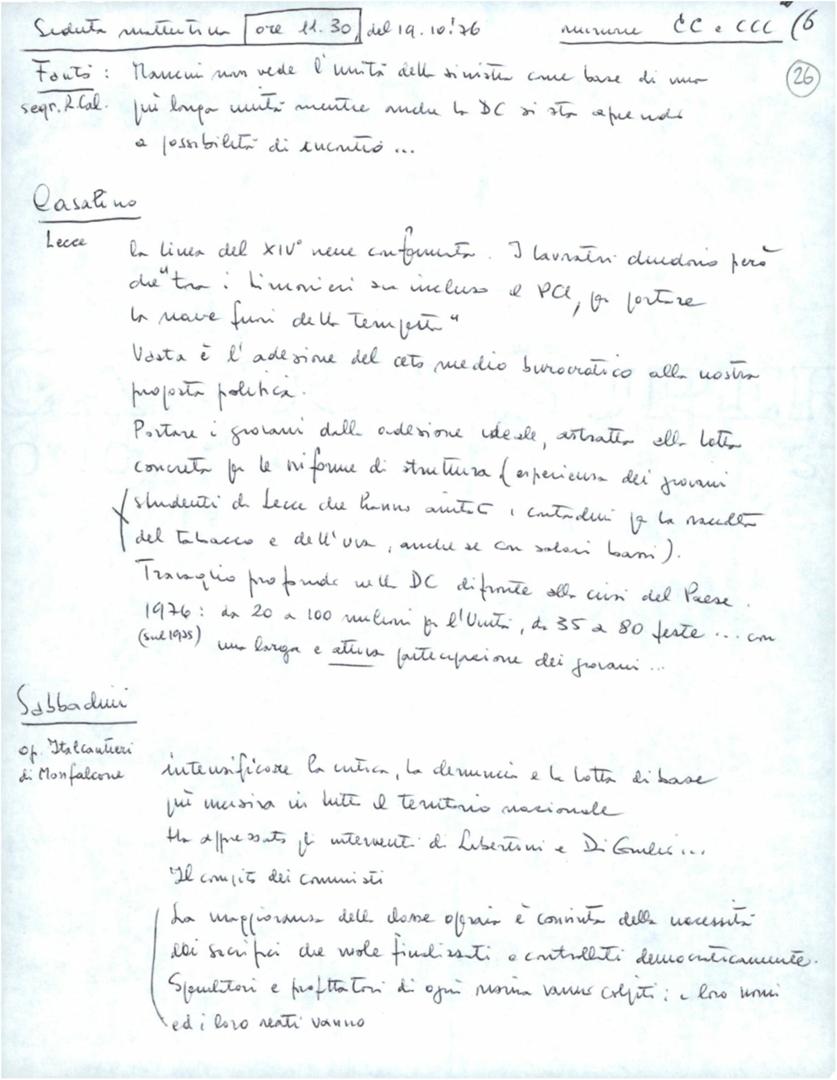 Seduta mattutina ore 11.30 del 19.10.'76 riunione CC e CCC (6
26
Fantò: Mancini non vede l'unità della sinistra come base di una
segr. R. Cal. più larga unità mentre anche la DC si sta aprendo
a possibilità di incontro ...
Casalino
Lecce
la linea del XIV° viene confermata. I lavoratori chiedono però
che "tra i timonieri sia incluso il PCI, per portare
la nave fuori della tempesta"
Vasta è l'adesione del ceto medio burocratico alla nostra
proposta politica.
Portare i giovani dalla adesione ideale, astratta alla lotta
concreta per le riforme di struttura (esperienza dei giovani
studenti di Lecce che hanno aiutato i contadini per la raccolta
del tabacco e dell'uva, anche se con salari bassi).
Travaglio profondo nella DC di fronte alla crisi del Paese.
1976: da 20 a 100 milioni per l'Unità, da 35 a 80 feste ... con
(sul 1975) una larga e attiva partecipazione dei giovani ...
Sabbadini
op. Italcantieri
di Monfalcone
intensificare la critica, la denuncia e la lotta di base
più incisiva in tutto il territorio nazionale
Ha apprezzato gli interventi di Libertini e Di Giulio ...
Il compito dei comunisti
La maggioranza della classe operaia è convinta della necessità
dei sacrifici che vuole finalizzati e controllati democraticamente.
Speculatori e profittatori di ogni risma vanno colpiti: i loro nomi
ed i loro reati vanno